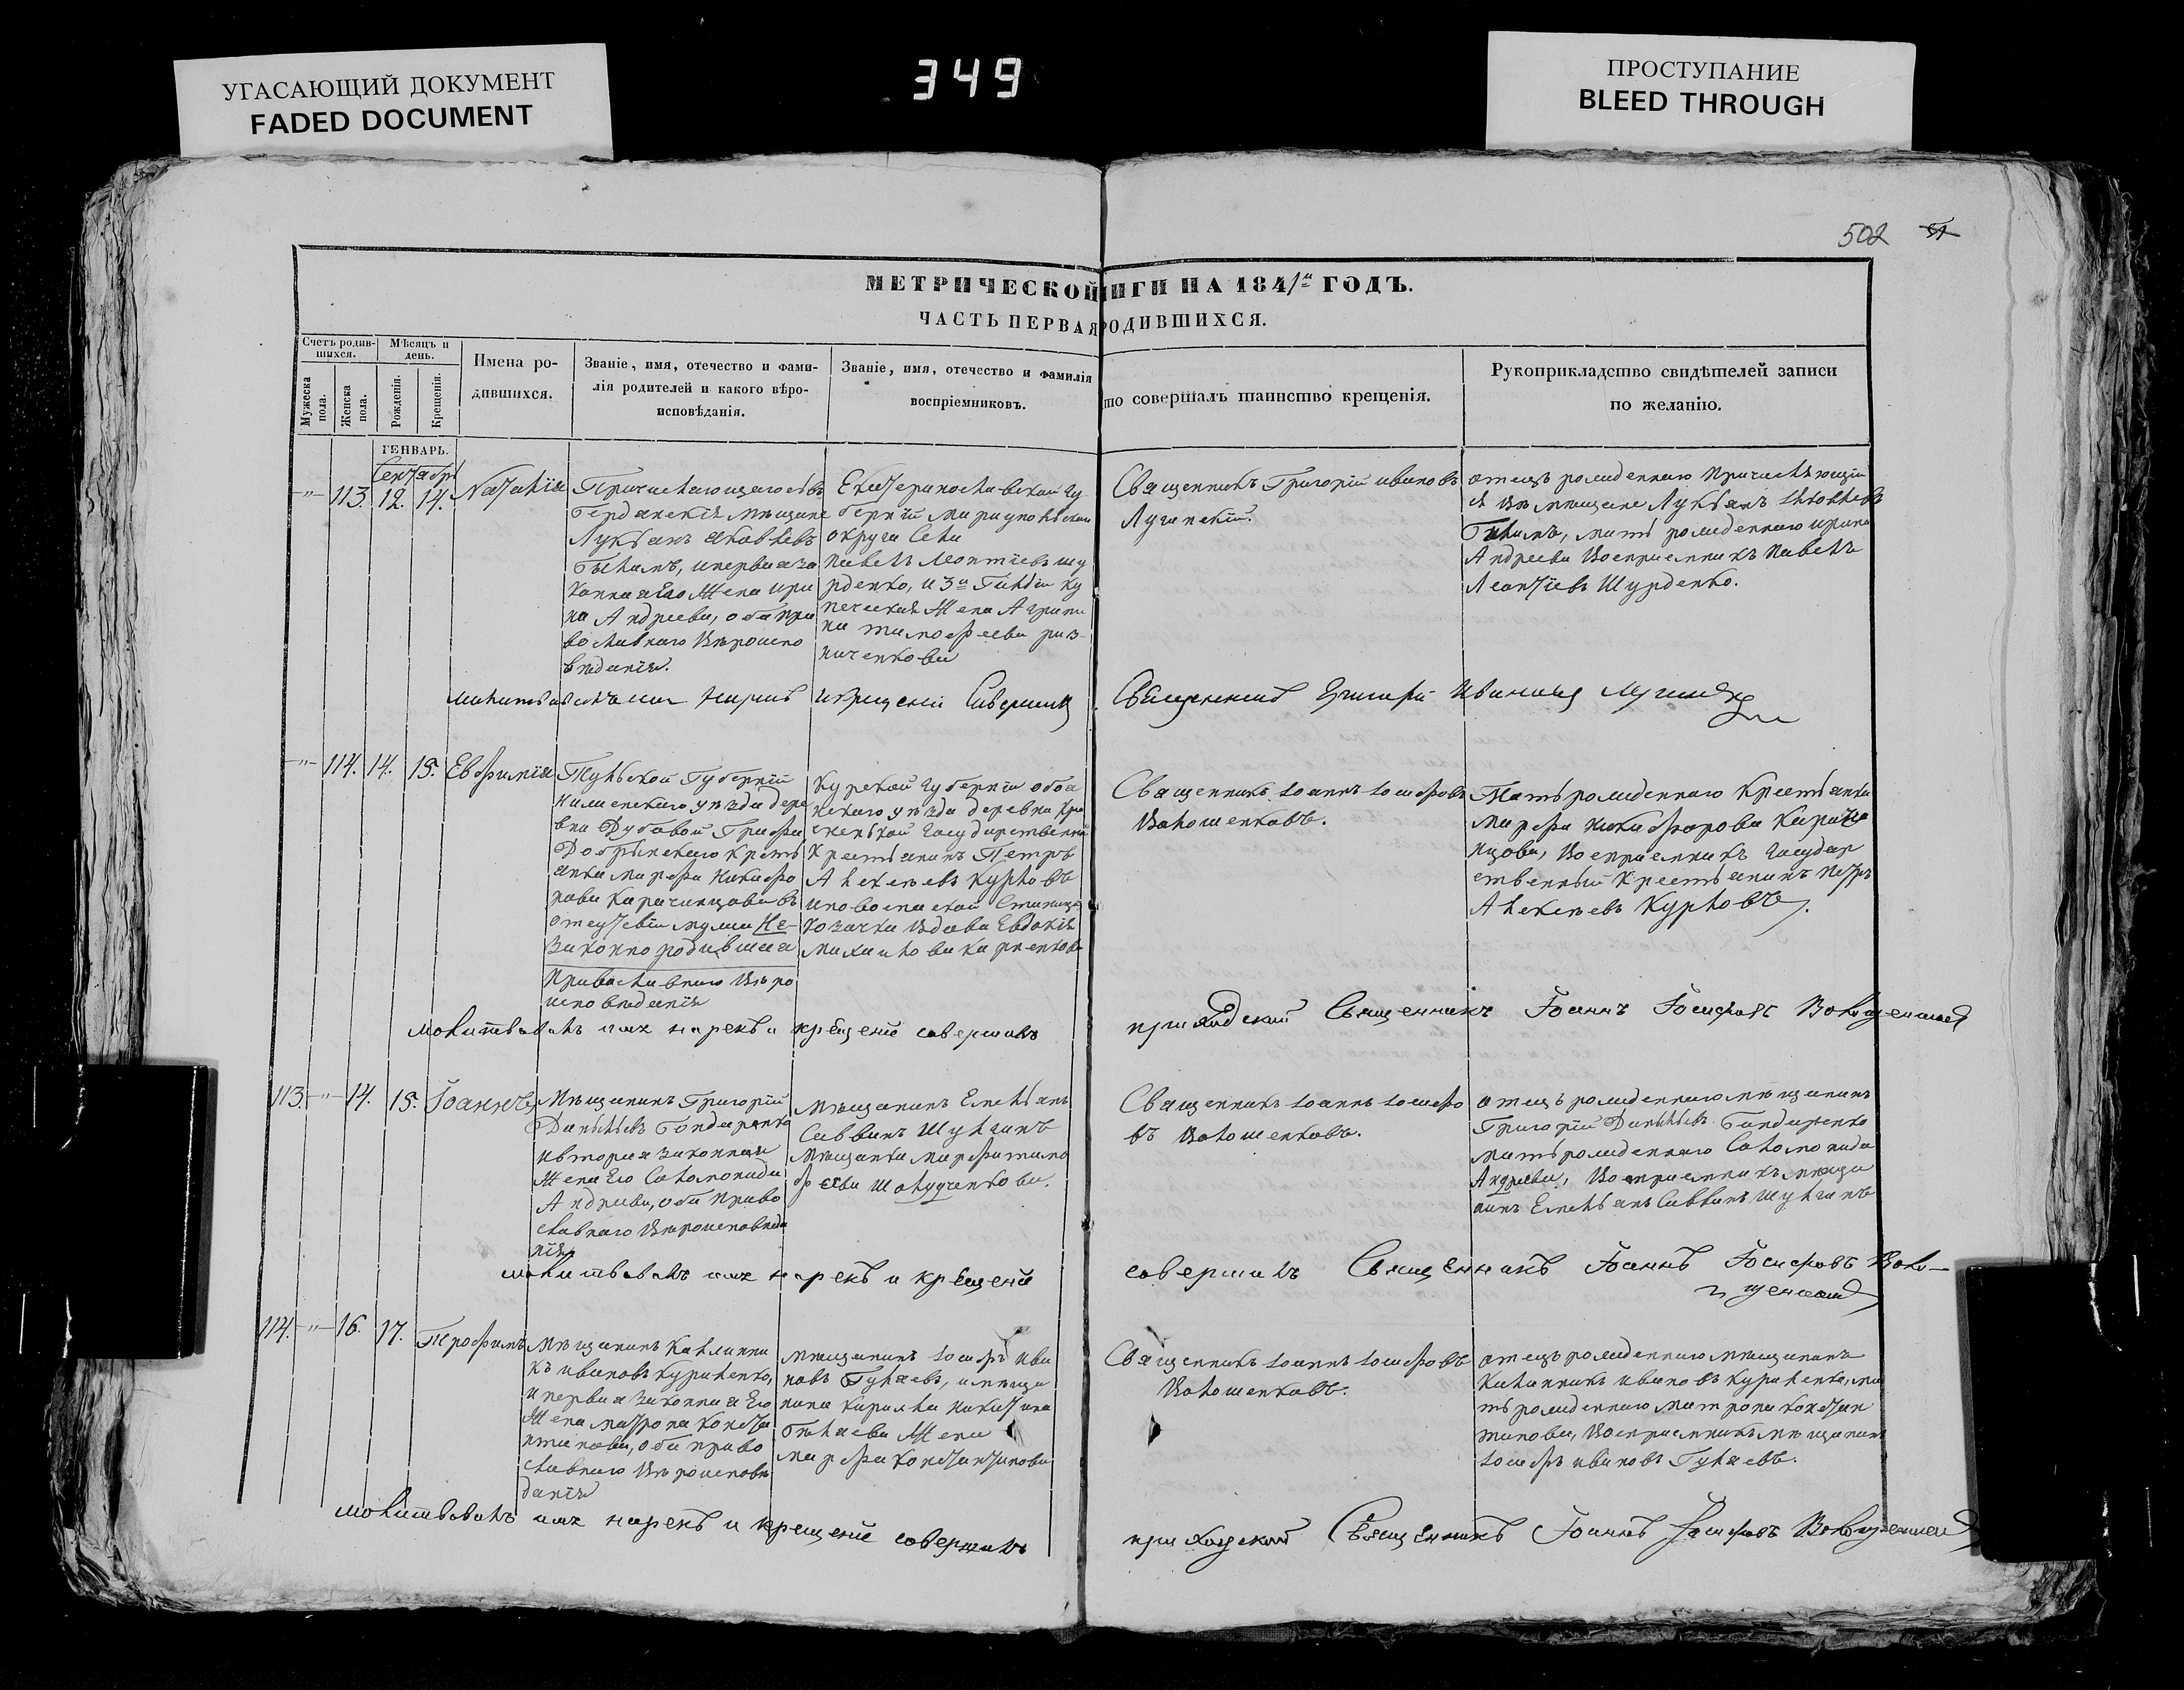 УГАСАЮЩИЙ ДОКУМЕНТ
FADED DOCUMENT
349
ПРОСТУПАНИЕ
BLEED THROUGH
502
МЕТРИЧЕСКОЙ ИГИ НА 1841 ГОДЪ.
ЧАСТЬ ПЕРВАЯ РОДИВШИХСЯ.
Счетъ родив-
шихся.
Мѣсяцъ и
день.
Мужеска
пола.
Женска
пола.
Рожденія.
Крещенія.
Имена ро-
дившихся.
Званіе, имя, отечество и фами-
лія родителей и какого вѣро-
исповѣданія.
Званіе, имя, отечество и фамилія
воспріемниковъ.
то совершалъ таинство крещенія.
Рукоприкладство свидѣтелей записи
по желанію.
ГЕНВАРЬ.
Сентябрь
113. 12. 14. Наталія
Бердянскія мѣщане
Лукьянъ Яковлевъ
и первая за
конная Его Жена Ири
на Андреева, оба пра
вославнаго вѣроиспо
вѣданія.
Екатеринославской Гу
берніи Мариупольской
округи
Павелъ Леонтіевъ Шу
рденко, и 3й Гильдіи ку
печеская Жена Агрипи
на Тимофеева Риз
ниченкова
Священникъ Григорій Ивановъ
Лугинскій.
отецъ рожденнаго
мать рожденнаго Ирина
Андреева Воспріемникъ Павелъ
Леонтіевъ Шурденко.
Священникъ Григорій Ивановъ
114. 14. 15. Евфимія
Тульской Губерніи
уѣзда дере
вни Дубовой Графа
Добрынскаго кресть
янка Марфа Никифо
рова въ
отсутствіи мужа Не-
законнородившаа
Православнаго Вѣро
исповѣданія
Курской Губерніи Обоя
нскаго уѣзда деревни
Государственный
Крестьянинъ Петръ
Алексѣевъ Курловъ
Станицы
козачка вдова Евдокія
Михайлова
Священникъ Іоаннъ Іосифовъ
Волошенковъ.
Мать рожденнаго Крестьянка
Марфа Никифорова
Воспріемникъ Государ
ственный Крестьянинъ Петръ
Алексѣевъ Курловъ.
молитвовалъ имя нарекъ и крещеніе совершалъ
приходскій Священникъ Іоаннъ Іосифовъ
113. 14. 15. Іоаннъ
Мѣщанинъ Григорій
Данильевъ Бондаренко
и вторая законная
Жена Его Соломонида
Андреева, оба Право
славнаго Вѣроисповѣда
нія
Мѣщанинъ Емельянъ
Саввинъ Шульгинъ
Мѣщанка Марфа Тимо
феева
Священникъ Іоаннъ Іосифо
въ Волошенковъ.
отецъ рожденнаго мѣщанинъ
Григорій Данильевъ Бондаренко
мать рожденнаго Соломонида
Андреева, Воспріемникъ мѣща
нинъ Емельянъ Саввинъ Шульгинъ
молитвовалъ имя нарекъ и крещеніе
совершалъ Священникъ Іоаннъ Іосифовъ
114. 16. 17. Трофимъ
Мѣщанинъ Каллини
къ Ивановъ Куриленко,
и первая законная Его
Жена Матрона Конста
нтинова, оба право
славнаго Вѣроисповѣ
данія
Мѣщанинъ Іосифъ Ива
новъ Гулаевъ, и мѣща
нина Кирилла Никитина
Жена
Марфа Константинова
Священникъ Іоаннъ Іосифовъ
Волошенковъ.
отецъ рожденнаго мѣщанинъ
Калинникъ Ивановъ Куриленко, ма
ть рожденнаго Матрона Констан
тинова, Воспріемникъ мѣщанинъ
Іосифъ Ивановъ Гулаевъ.
молитвовалъ имя нарекъ и крещеніе совершалъ
приходскій Священникъ Іоаннъ Іосифовъ